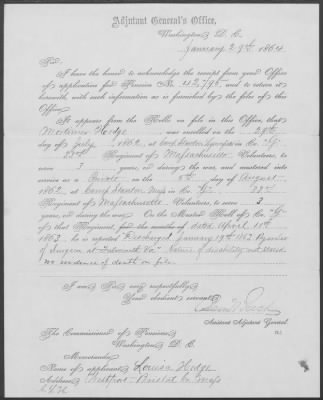 Adjutant General's Office,
Washington D. C.
January 29th 1864
Sir:
I have the honor to acknowledge the receipt from your Office
of application for Pension No. 42,795 and to return it
herewith, with such information as is furnished by the files of this
Office.
It appears from the Rolls on file in this Office, that
Mortimer Hodge was enrolled on the 28th
day of July 1862, at Camp Stanton Lynnfield in Co. "G"
33rd Regiment of Massachusetts Volunteers, to
serve 3 years, or during the war, and mustered into
service as a Private on the 5th day of August
1862, at Camp Stanton Mass in Co. "G" 33rd
Regiment of Massachusetts Volunteers, to serve 3
years, or during the war. On the Muster Roll of Co. "G"
of that Regiment, for the months of dated April 10th
1863 he is reported "Discharged January 19th 1863 By order
of Surgeon at Falmouth Va." Nature of disability not stated
no evidence of death on file.
I am, Sir, very respectfully,
Your obedient servant,
Assistant Adjutant General
The Commissioner of Pensions,
Washington D. C.
Memoranda.
Name of applicant, Louisa Hodge
Address, Westport Bristol Co. Mass